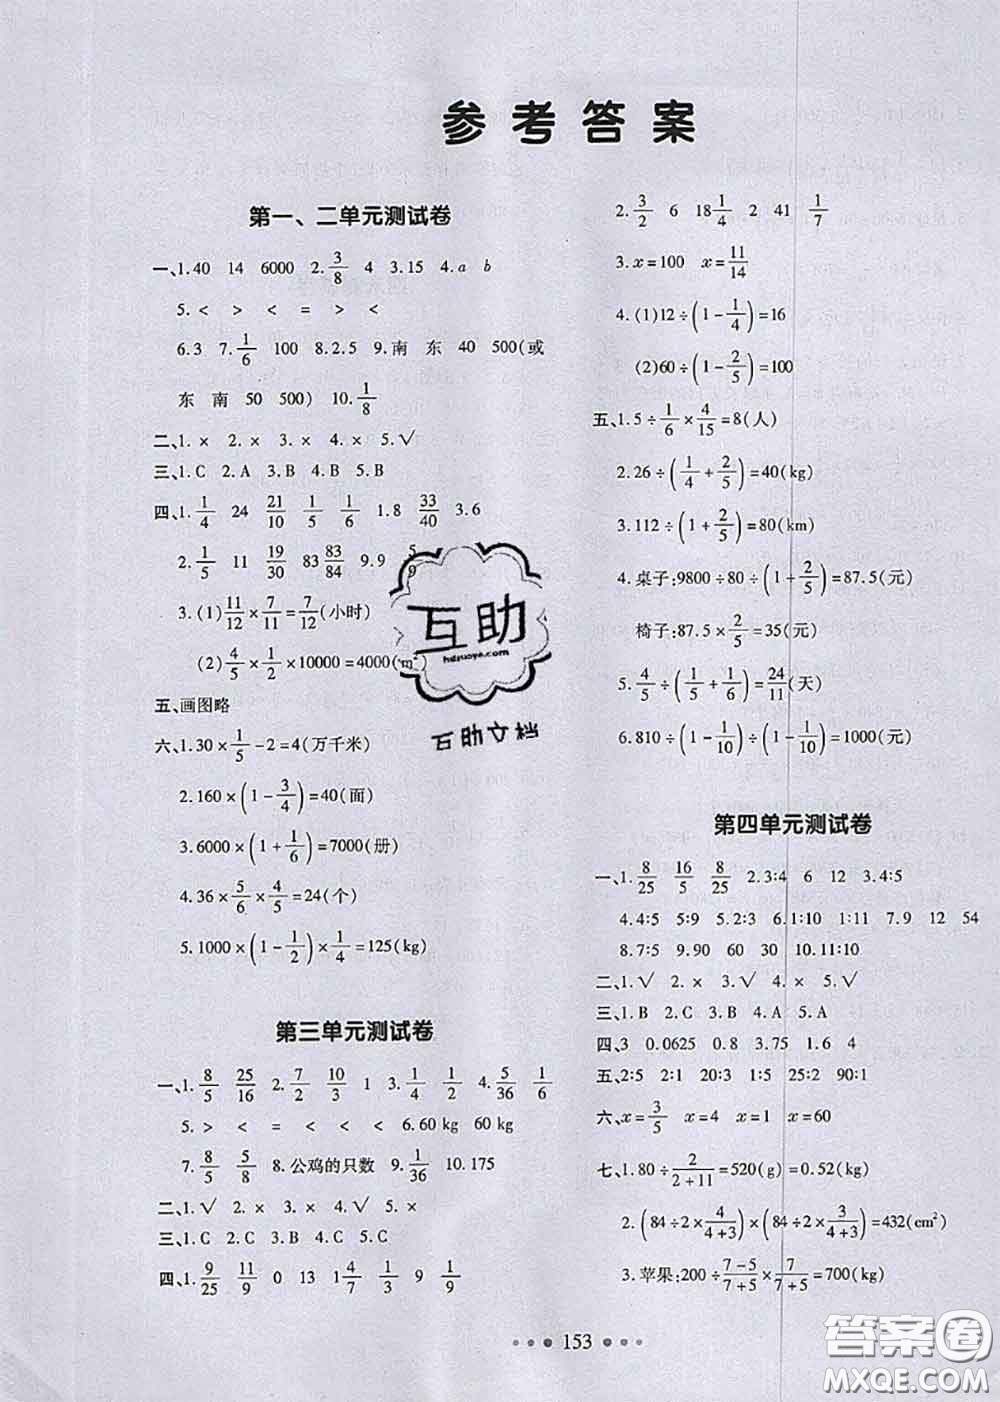 参考答案
第一、二单元测试卷
一、1.40 14 6000 2.3/8 4 3.15 4.a b
5.< > < = > <
6.3 7.1/6 100 8.2.5 9.南 东 40 500(或
东 南 50 500) 10.1/8
二、1.× 2.× 3.× 4.× 5.√
三、1.C 2.A 3.B 4.B 5.B
四、1.1/4 24 21/10 1/5 1/6 1.8 33/40 3.6
2.1/5 11 19/30 83 83/84 9.9 5/9
3.(1)11/12×7/11=7/12(小时)
(2)4/5×1/2×10000=4000(m²)
五、画图略
六、1.30×1/5-2=4(万千米)
2.160×(1-3/4)=40(面)
3.6000×(1+1/6)=7000(册)
4.36×5/6×4/5=24(个)
5.1000×(1-1/2)×1/4=125(kg)
第三单元测试卷
一、1.8/5 25/16 2.7/2 10/3 1 3.1/4 1/2 4.5/36 1/6
5.> < = < < < 6.60 kg 60 kg
7.8/5 5/8 8.公鸡的只数 9.1/36 10.175
二、1.√ 2.× 3.× 4.√ 5.×
三、1.C 2.C 3.B 4.C 5.C
四、1.9/25 11/9 0 13 1 4/7 1/3 9 1/9
2.3/2 6 18 1/4 2 41 1/7
3.x=100 x=11/14
4.(1)12÷(1-1/4)=16
(2)60÷(1-2/5)=100
五、1.5÷1/6×4/15=8(人)
2.26÷(1/4+2/5)=40(kg)
3.112÷(1+2/5)=80(km)
4.桌子:9800÷80÷(1+2/5)=87.5(元)
椅子:87.5×2/5=35(元)
5.4/5÷(1/5+1/6)=24/11(天)
6.810÷(1-1/10)÷(1-1/10)=1000(元)
第四单元测试卷
一、1.8/25 16/5 8/25 2.3:4 6 12 3.4:5
4.4:5 5:9 5.2:3 6.1:10 1:11 7.9 12 54
8.7:5 9.90 60 30 10.11:10
二、1.√ 2.× 3.√ 4.× 5.√
三、1.B 2.C 3.B 4.A 5.A
四、3 0.0625 0.8 3.75 1.6 4
五、2:5 2:1 20:3 1:5 25:2 90:1
六、x=3/5 x=4 x=1 x=60
七、1.80÷2/(2+11)=520(g)=0.52(kg)
2.(84÷2×4/(4+3))×(84÷2×3/(4+3))=432(cm²)
3.苹果:200÷(7-5)/(7+5)×7/(7+5)=700(kg)
153
互助
hdzuoye.com
互助文档
答案圈
MXQE.COM